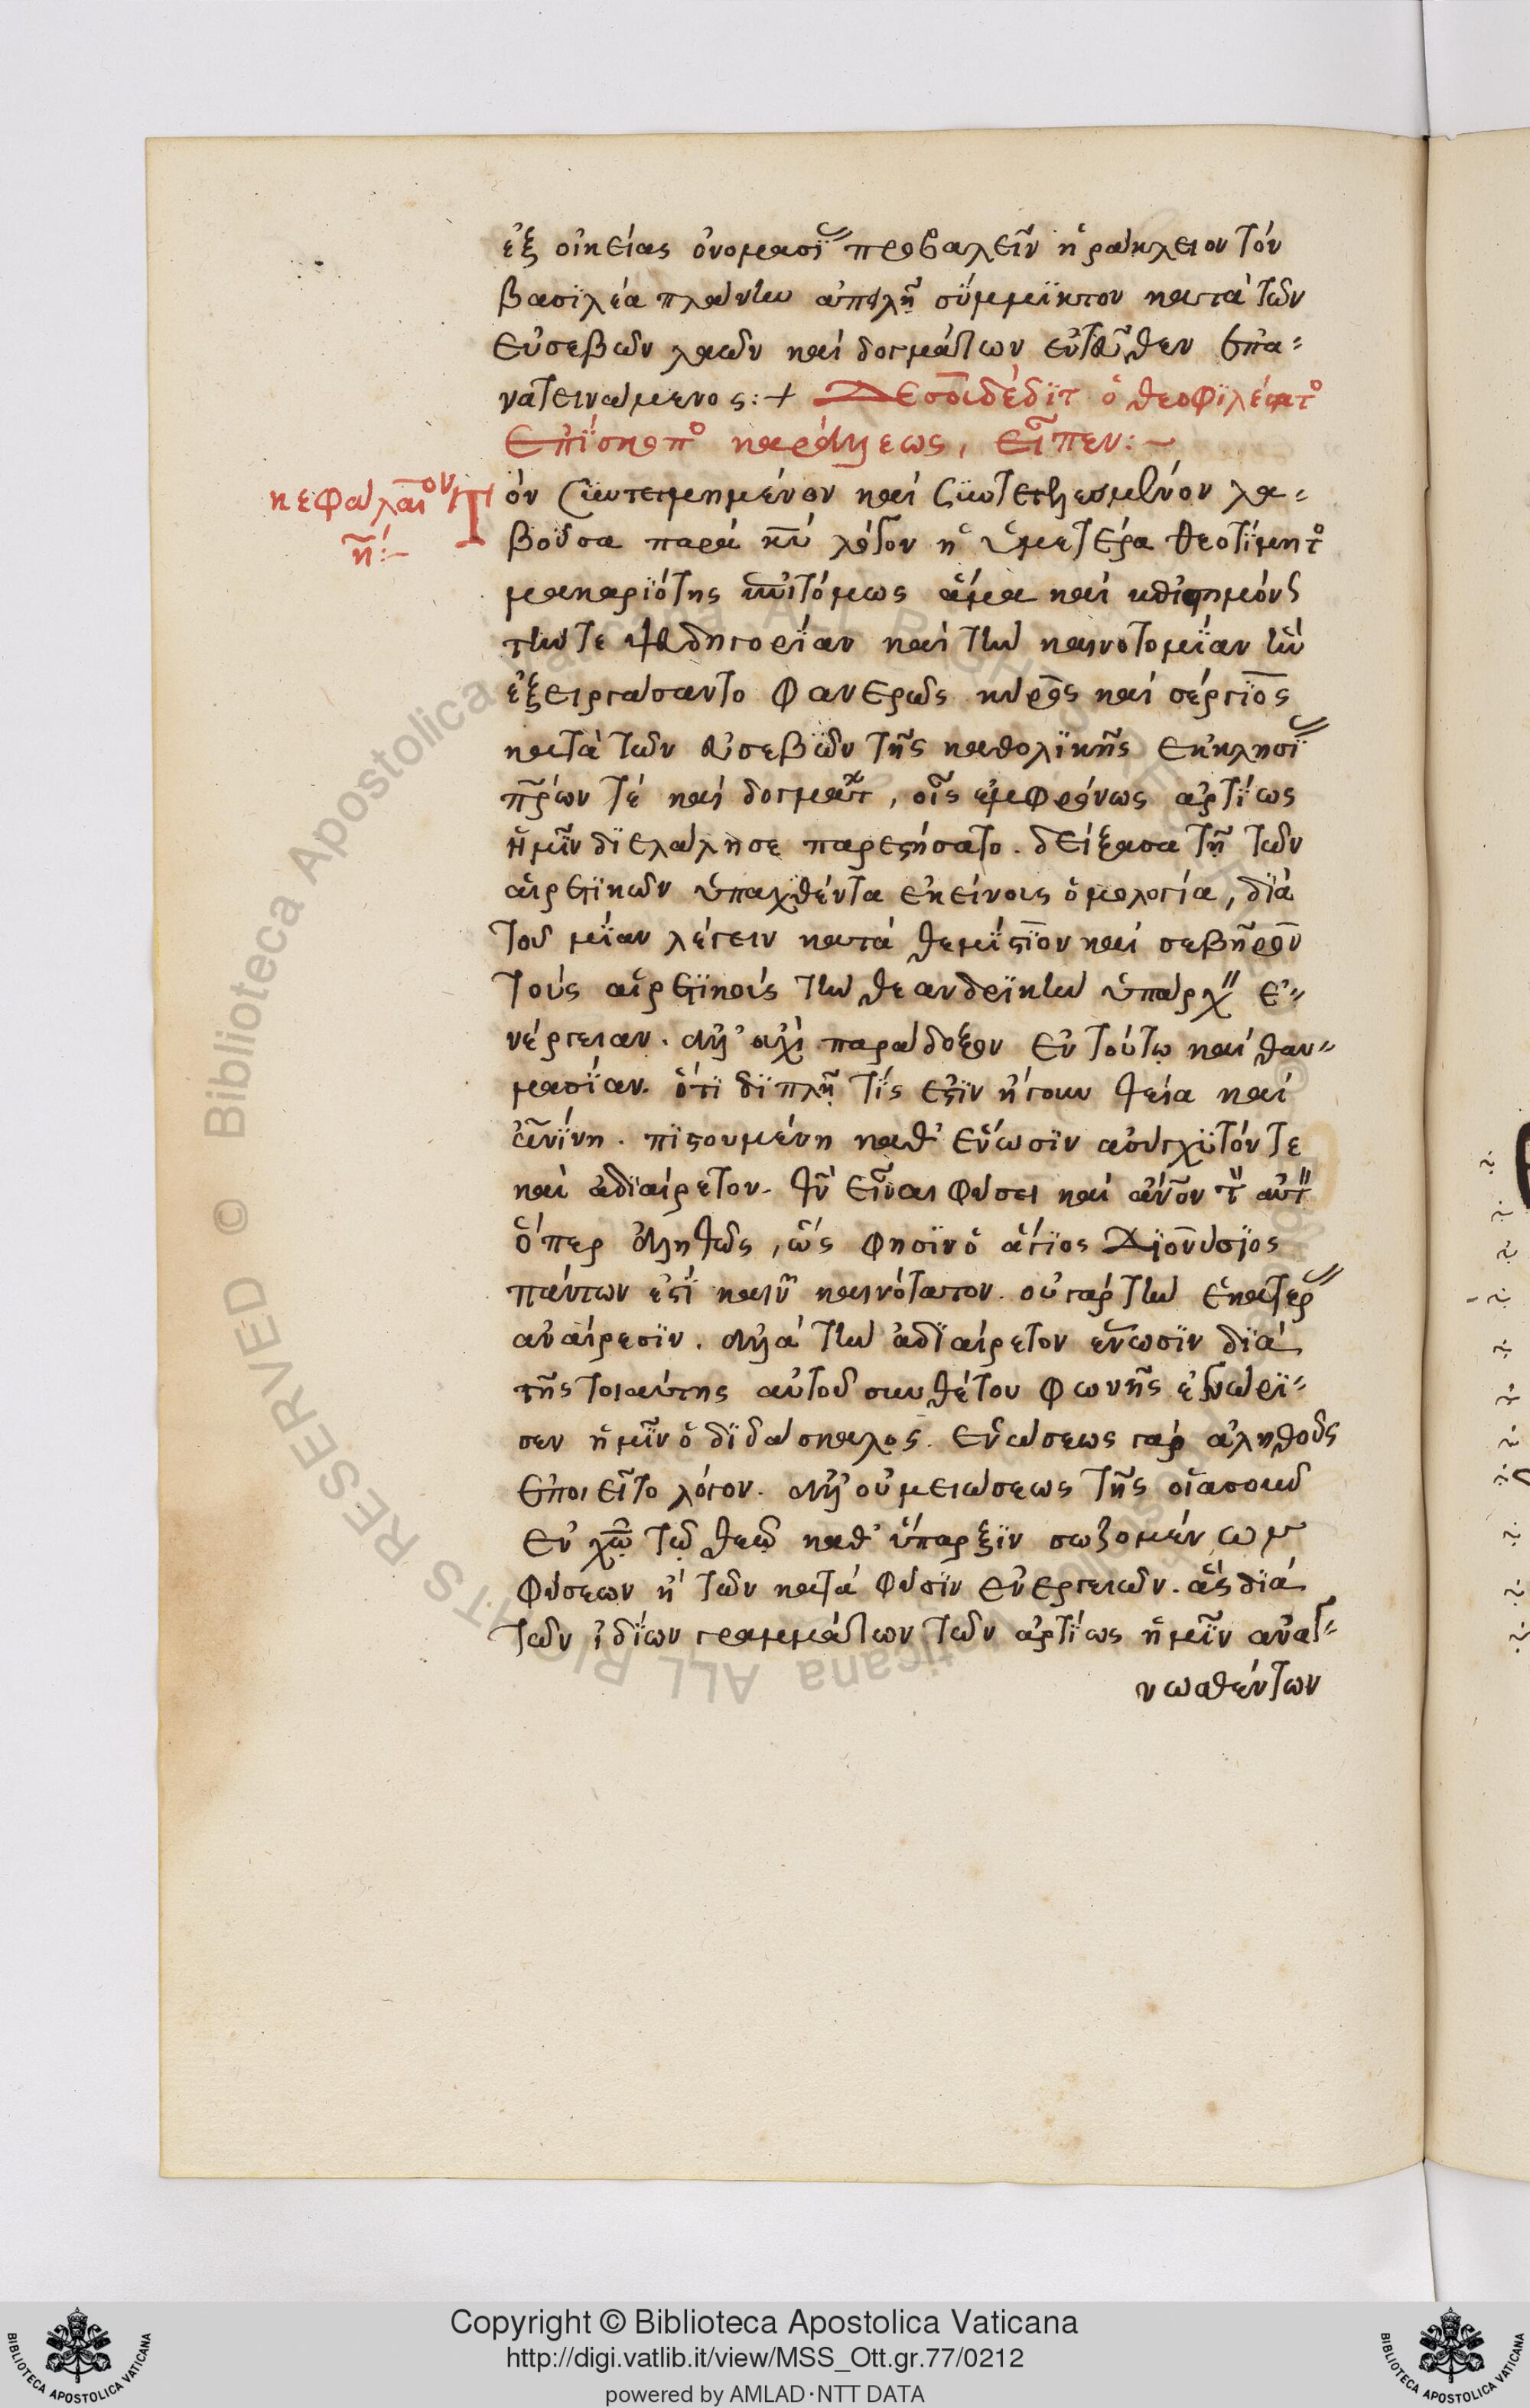 ἐξ οἰκείας ὀνομασί προβαλεῖν ἡράκλειον τόν
βασιλέα πλάνην ἁπλῇ σύμμικτον κατὰ τῶν
εὐσεβῶν λαῶν καὶ δογμάτων ἐντεῦθεν ἐπα-
νατεινάμενος:+ Δεουσδέδιτ ὁ θεοφιλέστατο
ἐπίσκοπο καράλλεως, εἶπεν:~
κεφάλαιον
η:~
Τόν συντετμημένον καὶ συντετελεσμένον λα-
βοῦσα παρὰ κυ λόγον ἡ ὑμετέρα θεοτίμητο
μακαριότης συντόμως ἅμα καὶ
τήν τε ψευδηγορίαν καὶ τὴν καινοτομίαν ἣν
ἐξειργάσαντο φανερῶς κύρος καὶ σέργιος
κατὰ τῶν εὐσεβῶν τῆς καθολικῆς ἐκκλησι
πρων τέ καὶ δογματ, οἷς ἐμφρόνως ἀρτίως
ἡμῖν διελάλησε παρεστήσατο. δείξασα τῇ τῶν
αἱρετικῶν ὑπαχθέντα ἐκείνους ὁμολογία, διὰ
τοῦ μίαν λέγειν κατὰ θεμίστιον καὶ σεβῆρον
τοὺς αἱρετικοὺς τὴν θεανδρικὴν ὑπάρχ ἐ-
νέργειαν. ἀλλ' οὐχὶ παράδοξον ἐν τούτω καὶ θαυ-
μασίαν. ὅτι διπλῆ τίς ἐστὶν ἤγουν θεία καὶ
ἀνίνη. πιστουμένη καθ' ἕνωσιν ἀσύγχυτόν τε
καὶ ἀδιαίρετον. θν εἶναι φύσει καὶ ἄνον τ αὐτ
ὅπερ ἀληθῶς, ὥς φησιν ὁ ἅγιος Διονύσιος
πάντων ἐστί καινῶν καινότατον. οὐ γάρ τὴν ἑκατέρ
ἀναίρεσιν. ἀλλὰ τὴν ἀδιαίρετον ἕνωσιν διὰ
τῆς τοιαύτης αὐτοῦ συνθέτου φωνῆς ἐγνώρι-
σεν ἡμῖν ὁ διδάσκαλος. ἑνώσεως γάρ ἀληθοῦς
ἐποιεῖτο λόγον. ἀλλ' οὐ μειώσεως τῆς οἱασοῦν
ἐν χῶ τῷ θεῷ καθ' ὕπαρξιν σωζομένων
φύσεων ἢ τῶν κατὰ φύσιν ἐνεργειῶν. ἃς διὰ
τῶν ἰδίων γραμμάτων τῶν ἀρτίως ἡμῖν ἀναγ-
νωσθέντων
Copyright © Biblioteca Apostolica Vaticana
http://digi.vatlib.it/view/MSS_Ott.gr.77/0212
powered by AMLAD·NTT DATA